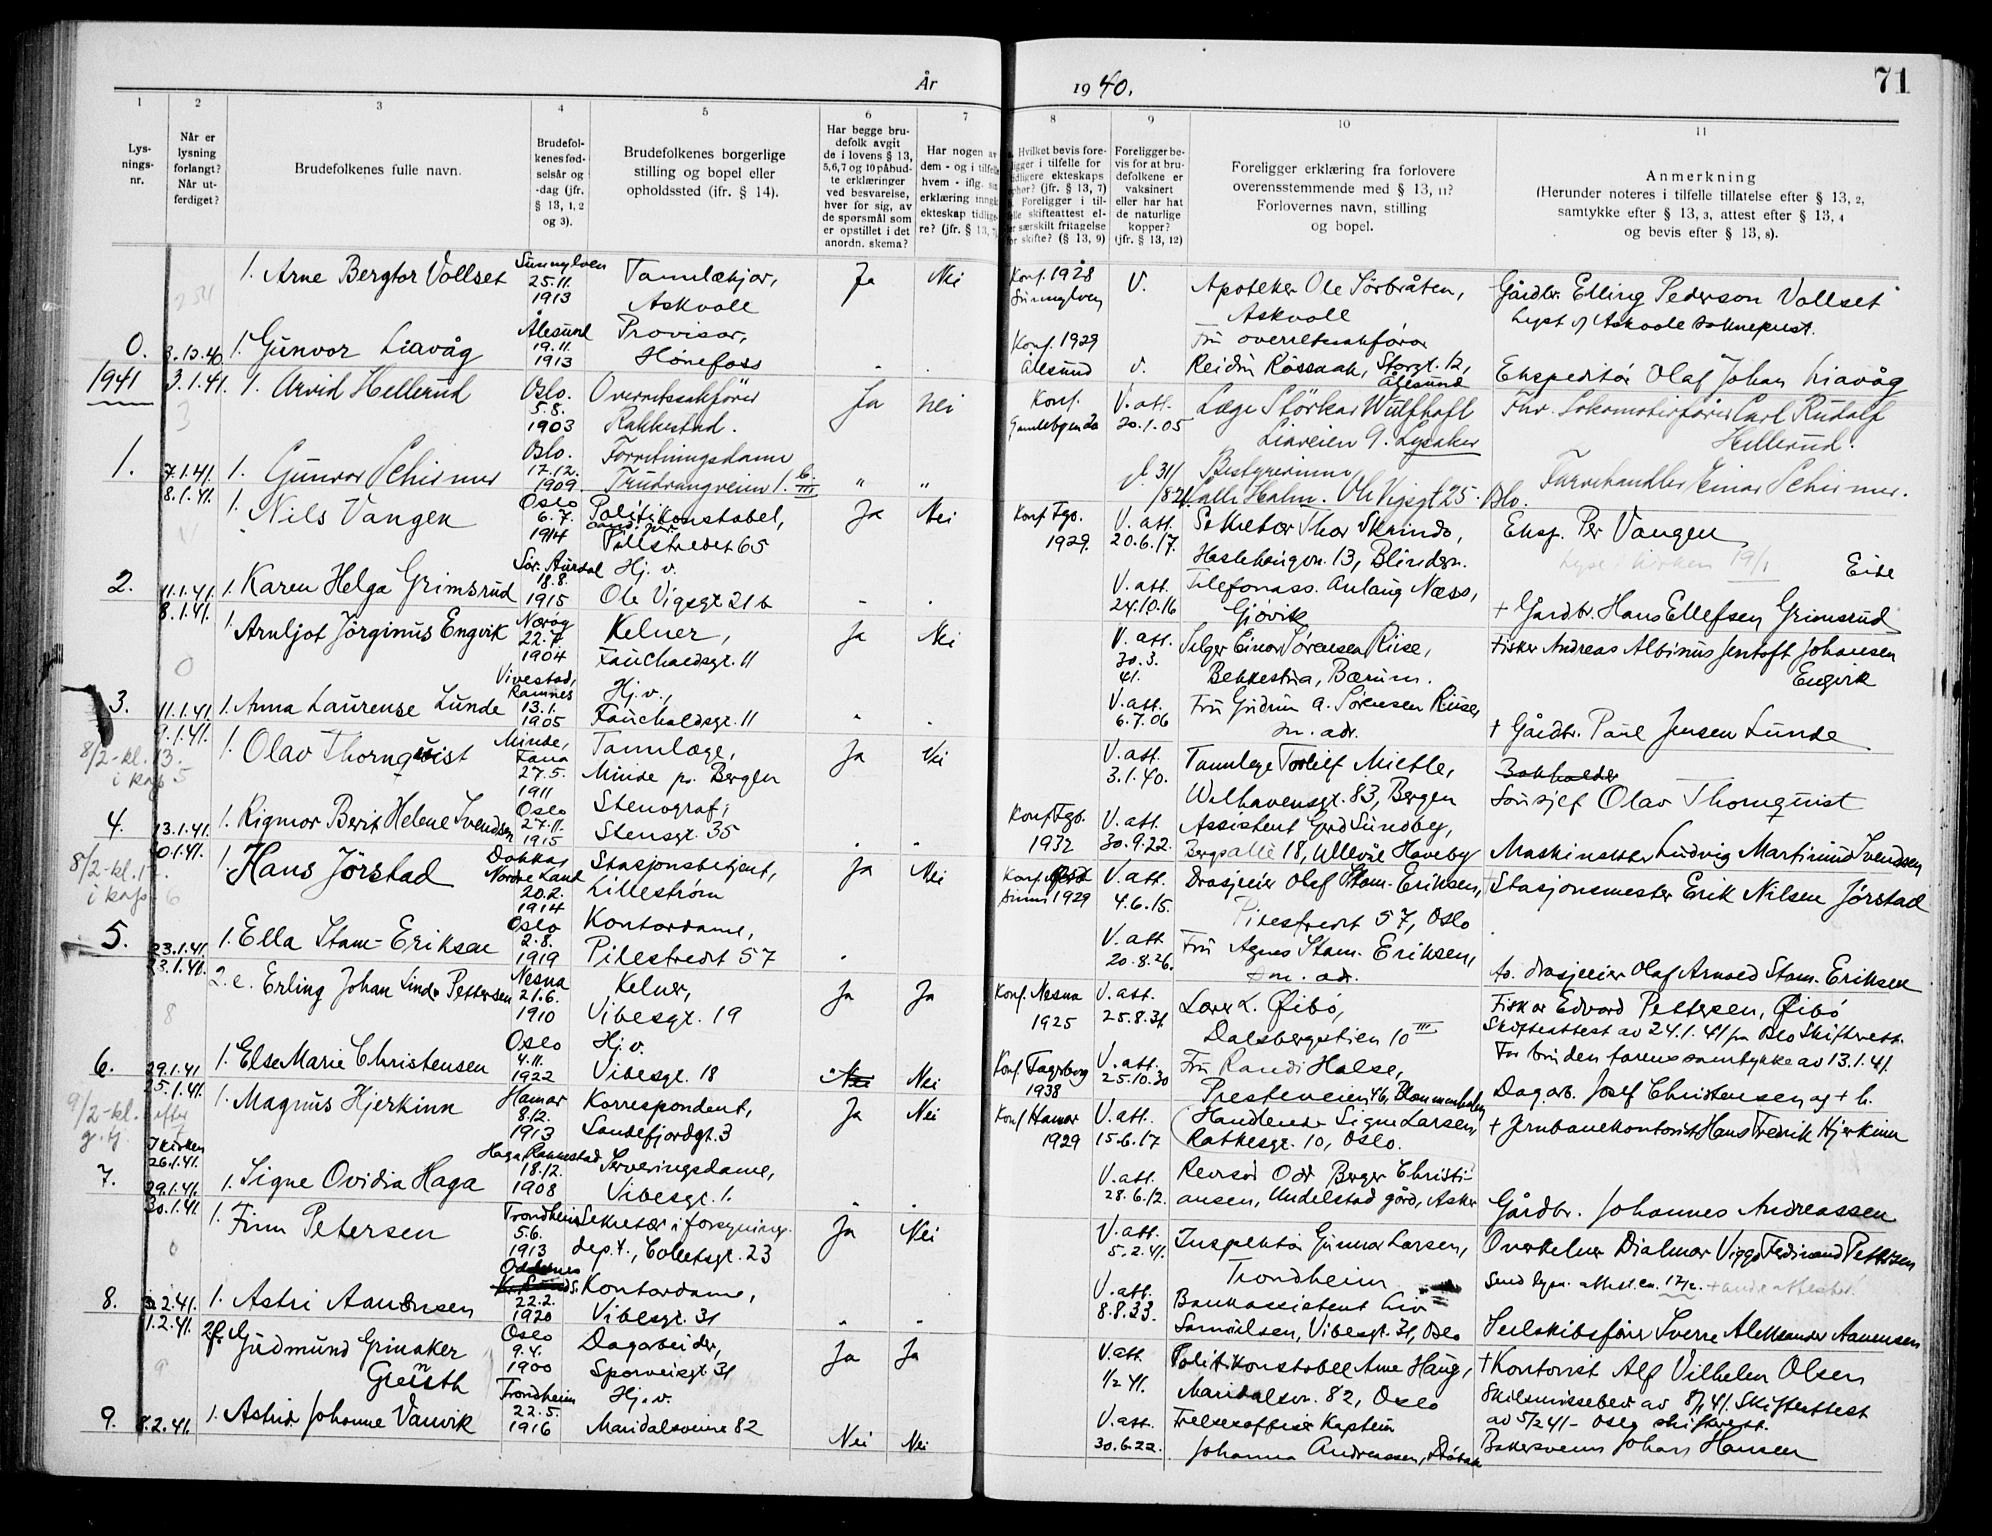 År
1940.
71
1 2 3 4 5 6 7 8 9 10 11
Lys-
nings-
nr.
Når er
lysning
forlangt?
Når ut-
ferdiget?
Brudefolkenes fulle navn.
Brudefol-
kenes fød-
selsår og
-dag (jfr.
§ 13, 1, 2
og 3).
Brudefolkenes borgerlige
stilling og bopel eller
opholdssted (jfr. § 14).
Har begge bru-
defolk avgit
de i lovens § 13,
5,6,7 og 10 påbud-
te erklæringer
ved besvarelse,
hver for sig, av
de spørsmål som
er opstillet i det
anordn. skema?
Har nogen av
dem - og i tilfelle
hvem - iflg. sin
erklæring inngått
ekteskap tidlige-
re? (jfr. § 13,
Hvilket bevis fore-
ligger i tilfelle for
tidligere ekteskaps
ophør? (jfr. § 13, 7)
Foreligger i til-
felle skifteattest el-
ler særskilt fritagelse
for skifte? (§ 13, 9)
Foreligger be-
vis for at bru-
defolkene er
vaksinert
eller har hat
de naturlige
kopper?
(jfr. § 13, 12)
Foreligger erklæring fra forlovere
overensstemmende med § 13, 11?
Forlovernes navn, stilling
og bopel.
Anmerkning
(Herunder noteres i tilfelle tillatelse efter § 13, 2,
samtykke efter § 13, 3, attest efter § 13, 4
og bevis efter § 13, 8).
1. Arne Bergtor Vollset
Sunnylven
25.11.
1913
Tannlækjar,
Askvoll
Ja Nei
Konf. 1928
Sunnylven
V.
Apoteker Ole Sörbråten,
Askvoll
Gårdbr. Elling Pederson Vollset
Lyst i Askvoll sokneprest.
0. 1. Gunvor Liavåg
Ålesund
19.11.
1913
Provisor,
Hønefoss
Konf. 1929
Ålesund
V.
Fru overretssakförer
Reidun Rössaak, Storgt. 12,
Ålesund
Ekspeditör Olaf Johan Liavåg
1941 3.1.41. 1. Arvid Hellerud
3
Oslo.
5.8.
1903
Overretssakförer
Rakkestad.
Ja Nei
Konf.
Gamlebyen
V. att.
20.1.05
Læge Störkar Wulfhaft
Liaveien 9. Lysaker
Fhv. Lokomotivförer Carl Rudolf
Hellerud.
1. 7.1.41. 1. Gunvor Schirmer
Oslo.
17.12.
1909.
Forretningsdame
Trudvangveien 1. b. III
" "
Bestyrerinne
Calli Holm. Ole Vigsgt 25. Oslo.
Farvehandler Einar Schirmer.
8.1.41. 1. Nils Vangen
Oslo
6.7.
1914
Politikonstabel,
cand. jur.
Pilestredet 65
Ja Nei
Konf. Fgb.
1929.
V. att.
20.6.17.
Sekretær Thor Skrindo,
Haslehaugvn. 13, Blindern.
Eksp. Per Vangen
19/1
2. 11.1.41. 1. Karen Helga Grimsrud
Sør. Aurdal
18.8.
1915
Hj. v.
Ole Vigsgt 21 b
V. att.
24.10.16
Telefonass. Anlaug Næss,
Gjövik
+ Gårdbr. Hans Ellefsen Grimsrud
8.1.41. 1. Arnljot Jörginus Engvik
Nærøy
22.7.
1904
Kelner,
Fauchaldsgt. 11
Ja Nei
V. att.
30.3.
41.
Selger Einar Sørensen Riise,
Bekkestua, Bærum.
+ Fisker Andreas Albinus Jentoft Johansen
Engvik
3. 11.1.41. 1. Anna Laurense Lunde
Vivestad,
Ramnes
13.1.
1905
Hj. v.,
Fauchaldsgt. 11
V. att.
6.7.06
Fru Gudrun A. Sørensen Riise,
sm. adr.
+ Gårdbr. Paul Jensen Lunde
8/2 - kl. 13.
9.1.41. 1. Olav Thornquist
Minde,
Fana
27.5.
1911
Tannlæge,
Minde pr. Bergen
Ja Nei
V. att.
3.1.40.
Tannlege Torleif Mietle,
Welhavensgt. 83, Bergen
Bokholder
Olav Thornquist
4. 13.1.41. 1. Rigmor Berit Helene Svendsen
Oslo
27.11.
1915
Stenograf,
Stensgt. 35
Konf. Fgb.
1932
V. att.
30.9.22.
Assistent Gerd Sundby,
Bergsallé 18, Ullevål Haveby
Maskinsetter Ludvig Martinius Svendsen
10.1.41. 1. Hans Jörstad
Dokka,
Nordre Land
20.2.
1914
Stasjonsbetjent,
Lilleström
Ja Nei
V. att.
4.6.15.
Drosjeeier Olaf Stam-Eriksen,
Pilestredet 57, Oslo
Stasjonsmester Erik Nilsen Jörstad
5. 23.1.41. 1. Ella Stam-Eriksen
Oslo
2.8.
1919
Kontordame,
Pilestredet 57
V. att.
20.8.26.
Fru Agnes Stam-Eriksen,
sm. adr.
Drosjeeier Olaf Arnold Stam-Eriksen
23.1.41. 2. e. Erling Johan Linds Pettersen
Nesna
21.6.
1910
Kelner,
Vibesgt. 19
Ja Ja
Konf. Nesna
1925
V. att.
25.8.31.
Lærer L. Øibö,
Dalsbergstien 10 III
Fisker Edvard Pettersen, Øibö
Skifteattest av 24.1.41 fra Oslo Skifterett.
6. 29.1.41 1. Else Marie Christensen
Oslo
4.11.
1922
Hj. v.
Vibesgt. 18
Nei Nei
Konf. Fagerborg
1938
V. att.
25.10.30
Fru Randi Halse,
Presteveien 46, Blommenholm
For bruden farens samtykke av 13.1.41.
Dagarb. Josef Christensen og + h.
25.1.41. 1. Magnus Hjerkinn
Hamar
8.12.
1913
Korrespondent,
Sandefjordgt. 3
Ja Nei
Konf. Hamar
1929
V. att.
15.6.17
Handlende Signe Larsen,
Ratkesgt. 10, Oslo.
+ Jernbanekontorist Hans Fredrik Hjerkinn
I kirken
26.1.41.
7. 29.1.41. 1. Signe Ovidia Haga
Haga, Rakkestad
18.12.
1908
Serveringsdame,
Vibesgt. 1.
V. att.
28.6.12.
Revisor Odd Berger Christi-
ansen, Undelstad gård, Asker
Gårdbr. Johannes Andreassen
30.1.41. 1. Finn Petersen
Trondheim
5.6.
1913
Sekretær i forsynings-
dep.t., Colletsgt. 23
Ja Nei
V. att.
5.2.41.
Inspektör Gunnar Larsen,
Trondheim
Overkelner Dialmar Viggo Ferdinand Pettersen
8. 3.2.41. 1. Astri Aanensen
Oddernes
22.2.
1920
Kontordame,
Vibesgt. 31
V. att.
8.8.33.
Bankassistent Liv
Samuelsen, Vibesgt. 31, Oslo
Seilskibsförer Sverre Aleksander Aanensen
1.2.41. 2 f. Gudmund Grinaker
Oslo
9.4.
1900
Dagarbeider,
Sporveisgt. 31
Ja Ja
V. att.
1/2 41.
Politikonstabel Arne Haug,
Maridalsvn. 82, Oslo
+ Kontorist Alf Vilhelm Olsen
Skilsmissebev. av 8/1 41. Skifteattest
av 5/2 41 - Oslo skifterett.
9. 8.2.41. 1. Astrid Johanne Vanvik
Trondheim
22.5.
1916
Hj. v.
Maridalsveien 82
Nei Nei
V. att.
30.6.22.
Frelsesoffiser Kaptein
Johanna Andreassen,
Bakersvenn Johan Hansen